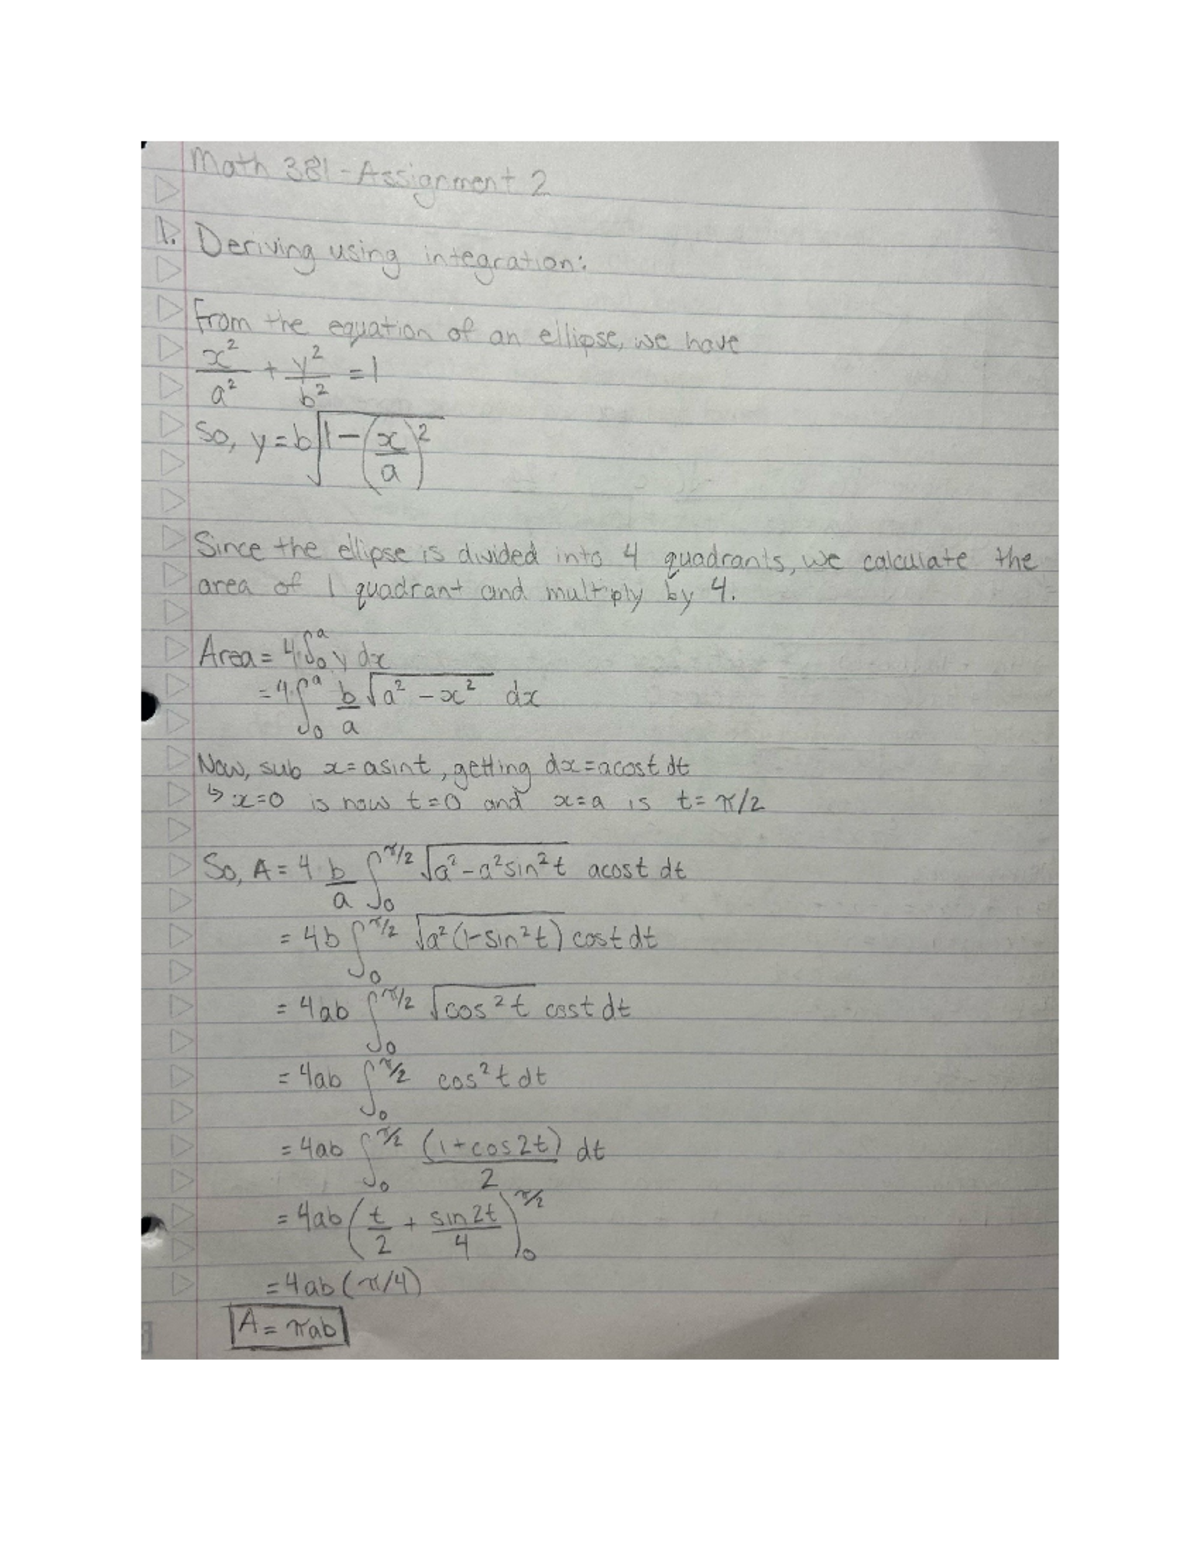 Math 381 - Assignment 2
1. Deriving using integration:
From the equation of an ellipse, we have
x²/a² + y²/b² = 1
So, y = b√(1 - (x/a)²)
Since the ellipse is divided into 4 quadrants, we calculate the
area of 1 quadrant and multiply by 4.
Area = 4·∫₀ᵃ y dx
= 4·∫₀ᵃ b/a √(a² - x²) dx
Now, sub x = asint, getting dx = acost dt
↳ x=0 is now t=0 and x=a is t= π/2
So, A = 4·b/a ∫₀^(π/2) √(a² - a²sin²t) acost dt
= 4b ∫₀^(π/2) √(a²(1-sin²t)) cost dt
= 4ab ∫₀^(π/2) √(cos²t) cost dt
= 4ab ∫₀^(π/2) cos²t dt
= 4ab ∫₀^(π/2) (1+cos2t)/2 dt
= 4ab (t/2 + sin2t/4)₀^(π/2)
= 4ab (π/4)
A = πab